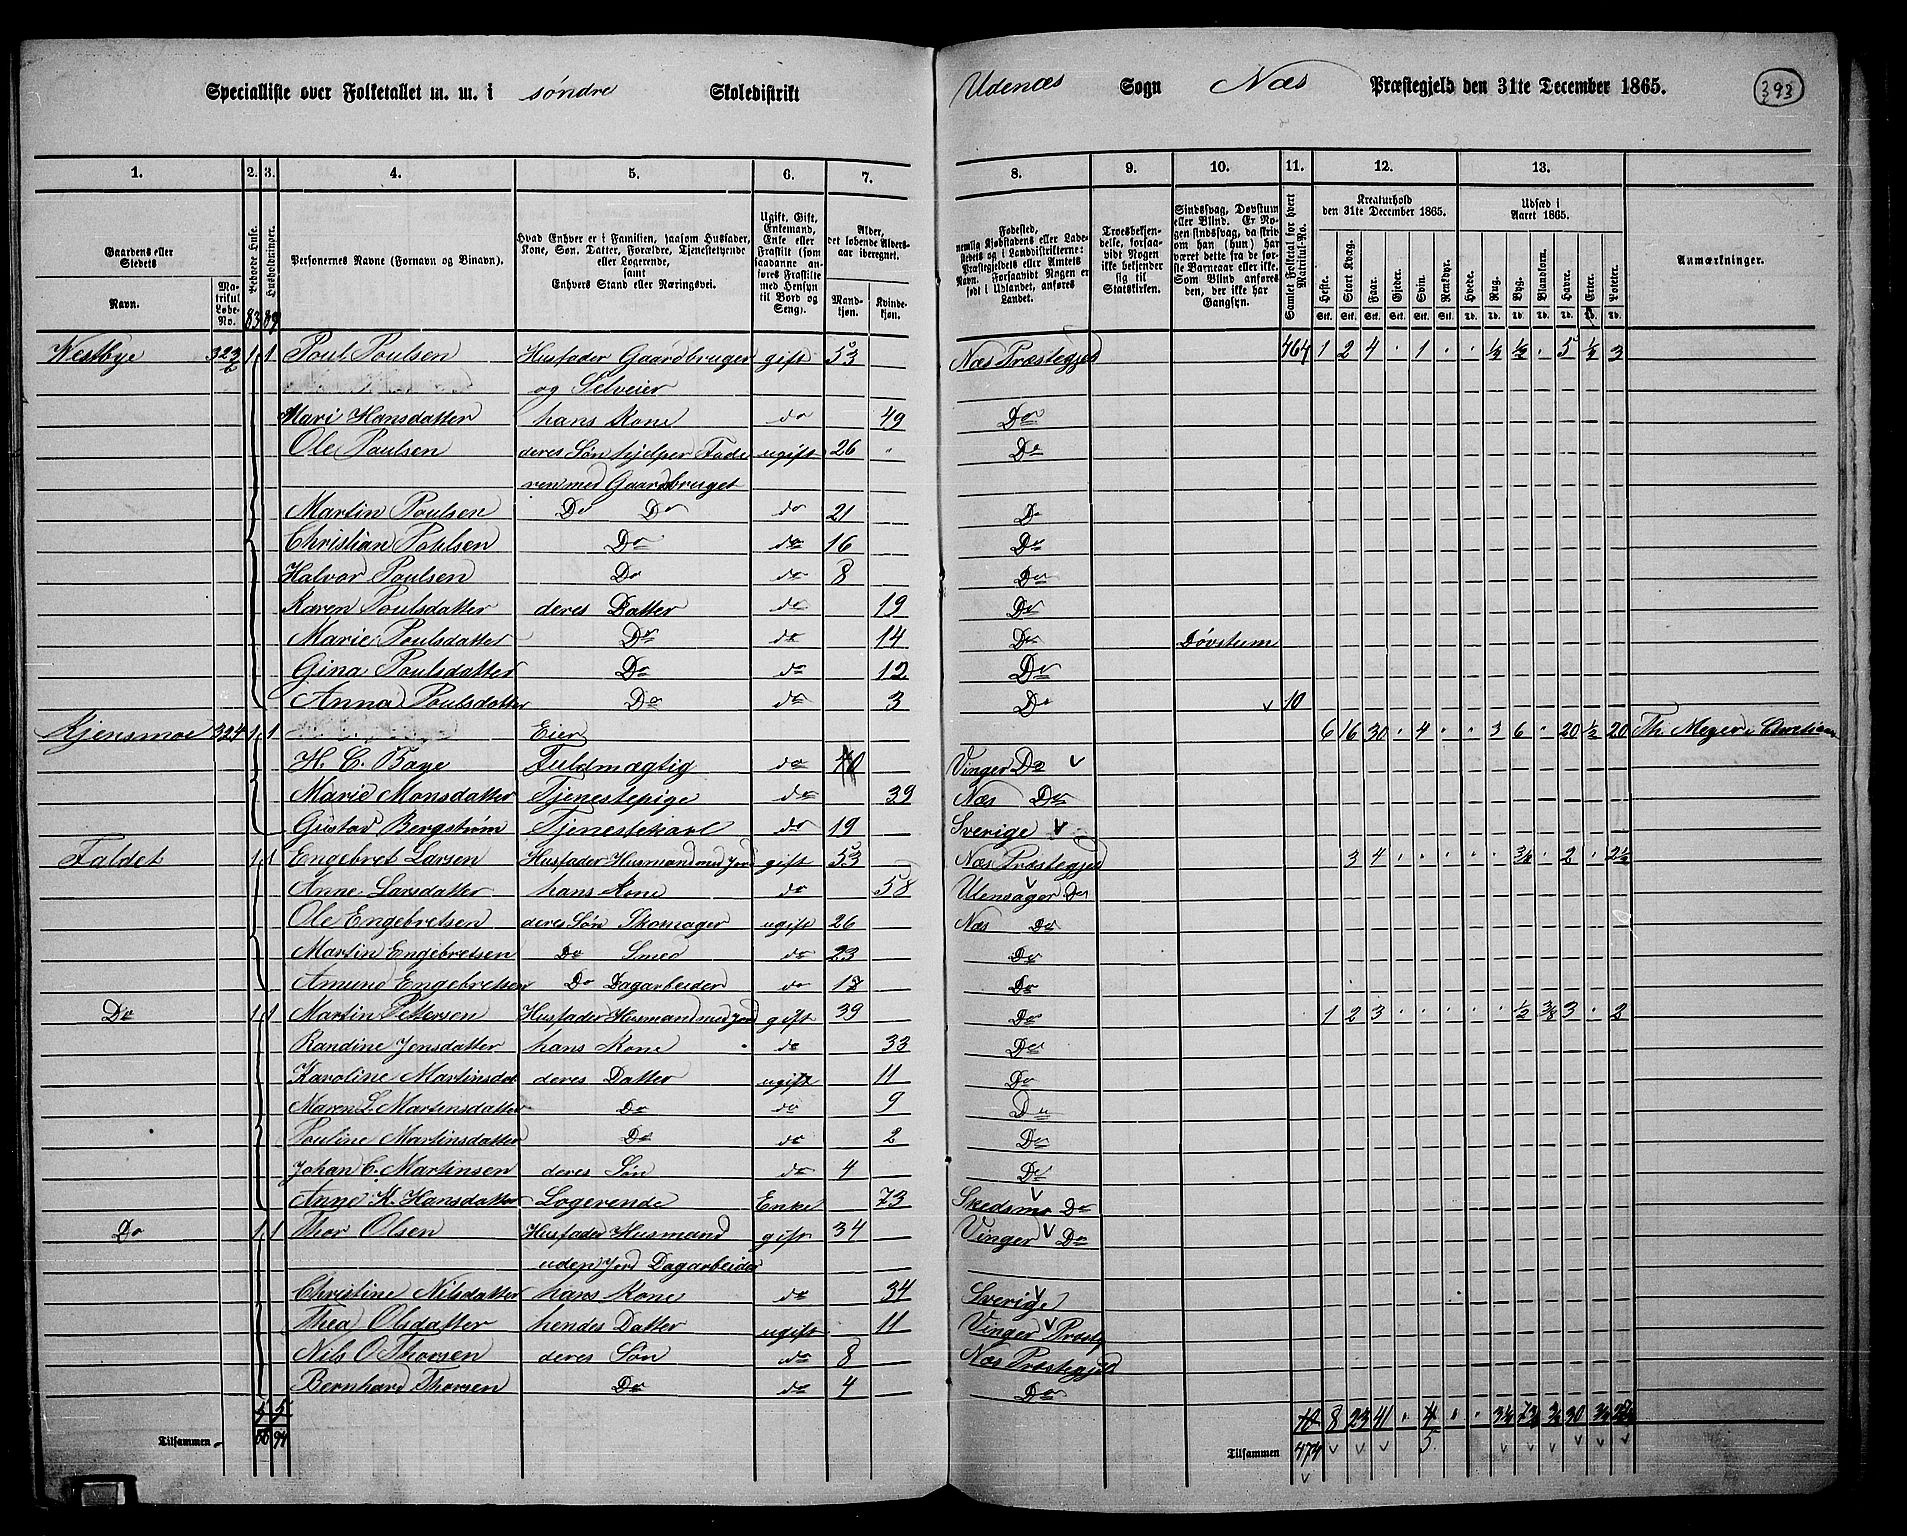 Specialliste over Folketallet m. m. i søndre Skoledistrikt Udenæs Sogn Næs Præstegjeld den 31te December 1865. 393
1. 2. 3. 4. 5. 6. 7. 8. 9. 10. 11. 12. 13.
Gaardens eller Stedets Navn. Matrikul Løbe-No. Beboede Huse. Husholdninger. Personernes Navne (Fornavn og Binavn). Hvad Enhver er i Familien, saasom Husfader, Kone, Søn, Datter, Forældre, Tjenestetyende eller Logerende, samt Enhvers Stand eller Næringsvei. Ugift, Gift, Enkemand, Enke eller Fraskilt (som saadanne anføres Fraskilte med Hensyn til Bord og Seng). Alder, det løbende Alders-aar iberegnet. Mandkjøn. Kvindekjøn.
Fødested, nemlig Kjøbstadens eller Ladestedets og i Landdistrikterne: Præstegjeldets eller Amtets Navn. Forsaavidt Nogen er født i Udlandet, anføres Landet. Troesbekjendelse, forsaavidt Nogen ikke bekjender sig til Statskirken. Sindssvag, Døvstum eller Blind. Er Nogen sindssvag, da skriv om han (hun) har været dette fra de første Barneaar eller ikke. Som Blind anføres den, der ikke har Gangsyn. Samlet Folketal for hvert Matrikul-No. Kreaturhold den 31te December 1865. Heste. Stort Kvæg. Faar. Gjeder. Svin. Rensdyr. Udsæd i Aaret 1865. Hvede. Rug. Byg. Blandkorn. Havre. Erter. Poteter. Anmærkninger.
Stk. Stk. Stk. Stk. Stk. Stk. Td. Td. Td. Td. Td. Td. Td.
83 89
Westbye 323 b 1 1 Poul Poulsen Husfader Gaardbruger gift 53 Næs Præstegjeld 464 1 2 4 . 1 . . ½ ½ . 5 ½ 3
og Selveier
Mari Hansdatter hans Kone do 49 Do
Ole Poulsen deres Søn hjelper Fade ugift 26 Do
ren med Gaardbruget
Martin Poulsen Do Do do 21 Do
Christian Poulsen Do do 16 Do
Halvor Poulsen Do do 8 Do
Karen Poulsdatter deres Datter do 19 Do
Marie Poulsdatter Do do 14 Do Døvstum
Gina Poulsdatter Do do 12 Do
Anna Poulsdatter Do do 3 Do 10
Kjensmoe 324 1 1 Eier 6 16 30 . 4 . . 3 6 . 20 ½ 20 Th. Meyer i Christiania
H. C. Bane Fuldmægtig do Vinger Do
Marie Monsdatter Tjenestepige do 39 Næs Do
Gustav Bergstrøm Tjenestekarl do 19 Sverige
Faldet 1 1 Engebret Larsen Husfader Husmand med Jord gift 53 Næs Præstegjeld 3 4 . . . . . ¾ . 2 . 2½
Anne Larsdatter hans Kone do 58 Ulensager Do
Ole Engebretsen deres Søn Skomager ugift 26 Næs Do
Martin Engebretsen Do Smed do 23 Do
Amund Engebretsen Do Dagarbeider do 18 Do
Do 1 1 Martin Pettersen Husfader Husmand med Jord gift 39 Do 1 2 3 . . . . . ½ ¾ 3 . 2
Randine Jensdatter hans Kone do 33 Do
Karoline Martinsdat deres Datter ugift 11 Do
Maren L. Martinsdatter Do do 9 Do
Pouline Martinsdatter Do do 2 Do
Johan C. Martinsen deres Søn do 4 Do
Anne K. Hansdatter Logerende Enke 73 Skedsmo Do
Do 1 1 Thor Olsen Husfader Husmand gift 34 Vinger Do
uden Jord Dagarbeider
Christine Nilsdatter hans Kone do 34 Sverige
Thea Olsdatter hendes Datter ugift 11 Vinger Præstg
Nils O Thorsen deres Søn do 8 Næs Præstegjeld
Bernhard Thorsen Do do 4 Do
5 5 10 8 23 41 . 4 . . 30
Tilsammen 94 Tilsammen 474 5